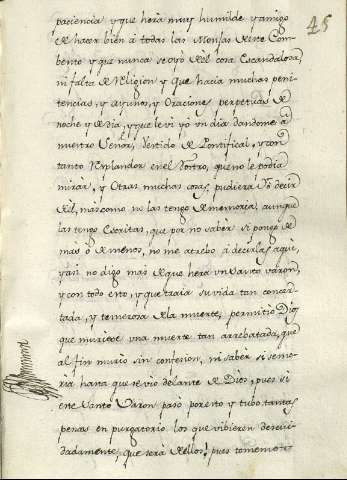 45
paciencia y que hera muy humilde y amigo
de hacer bien à todas las Monjas de este Com-
bento y que nunca se oyo de el cosa Escandalosa,
ni falta de Religion, y Que hacia muchas peni-
tencias, y ayunos, y Oraciones perpetuas de
noche y de dia, y que le vi yo un dia dandome à
nuestro Señor, Vestido de Pontifical, y con
tanto Resplandor en el Rostro, que no le podia
mirar, y Otras muchas cosas pudiera Yo decir
de el, mas como no las tengo de memoria aunque
las tengo Escritas, que por no saber si pongo de
mas ò de menos, no me atrebo à decirlas aqui,
y asi no digo mas de que hera un Santo varon,
y con todo esto, y que traia su vida tan concer-
tada, y temerosa de la muerte, permitio Dios
que muriese una muerte tan arrebatada, que
al fin murio sin confesion, ni saber si se mo-
ria hasta que se vio delante de Dios, pues si
este Santo Varon pasò por esto y tubo tantas
penas en purgatorio los que vibieron descui-
dadamente, que serà de ellos, pues tomemos